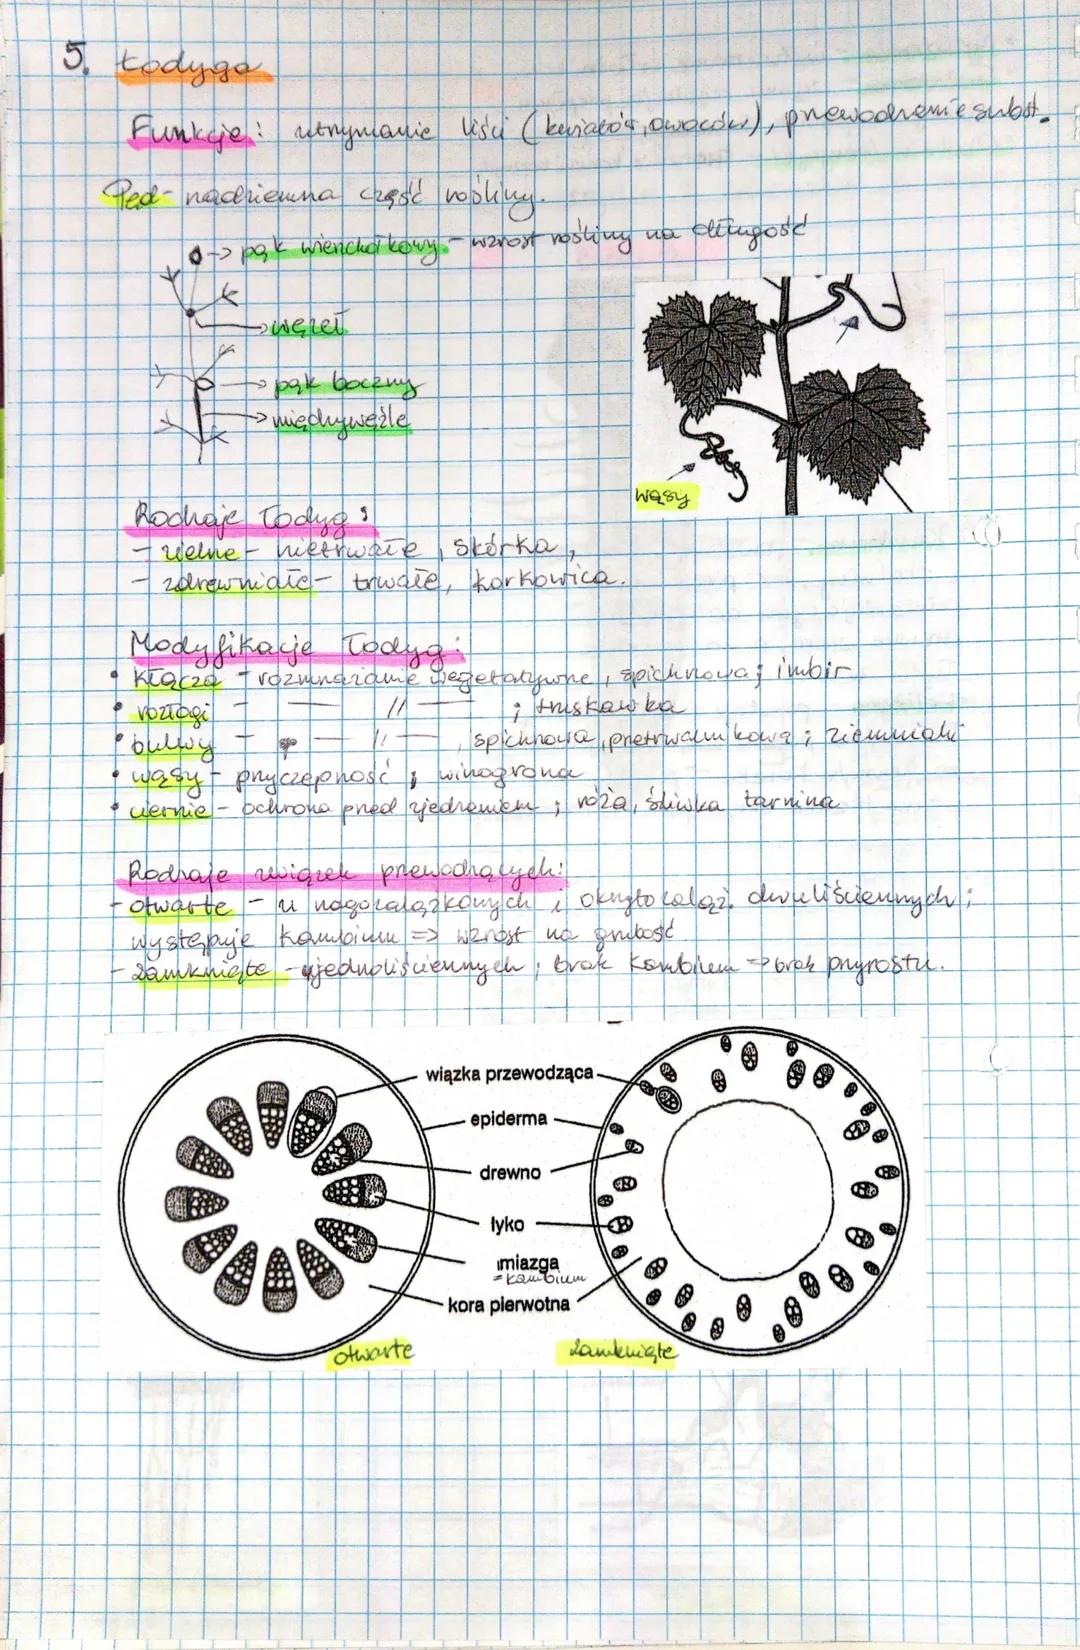 5. Łodyga
Funkcje: utrzymanie liści (kwiatów, owoców), przewodzenie subst.
Pęd - nadziemna część rośliny.
-> pąk wierzchołkowy - wzrost rośliny na długość
-> węzeł
-> pąk boczny
-> międzywęźle
wąsy
Rodzaje łodyg:
- zielne - nietrwałe, skórka,
- zdrewniałe - trwałe, korkowica.
Modyfikacje łodyg:
• kłącza - rozmnażanie wegetatywne, spichrzowa; imbir
• rozłogi - — // — ; truskawka
• bulwy - — // — , spichrzowa, przetrwalnikowa; ziemniaki
• wąsy - przyczepność; winogrona
• ciernie - ochrona przed zjedzeniem; róża, śliwka tarnina
Rodzaje wiązek przewodzących:
- otwarte - u nagozalążkowych i okrytozaląż. dwuliściennych;
występuje kambium => wzrost na grubość
- zamknięte - u jednoliściennych; brak kambium => brak przyrostu.
wiązka przewodząca
epiderma
drewno
łyko
miazga
= kambium
kora pierwotna
otwarte
zamknięte